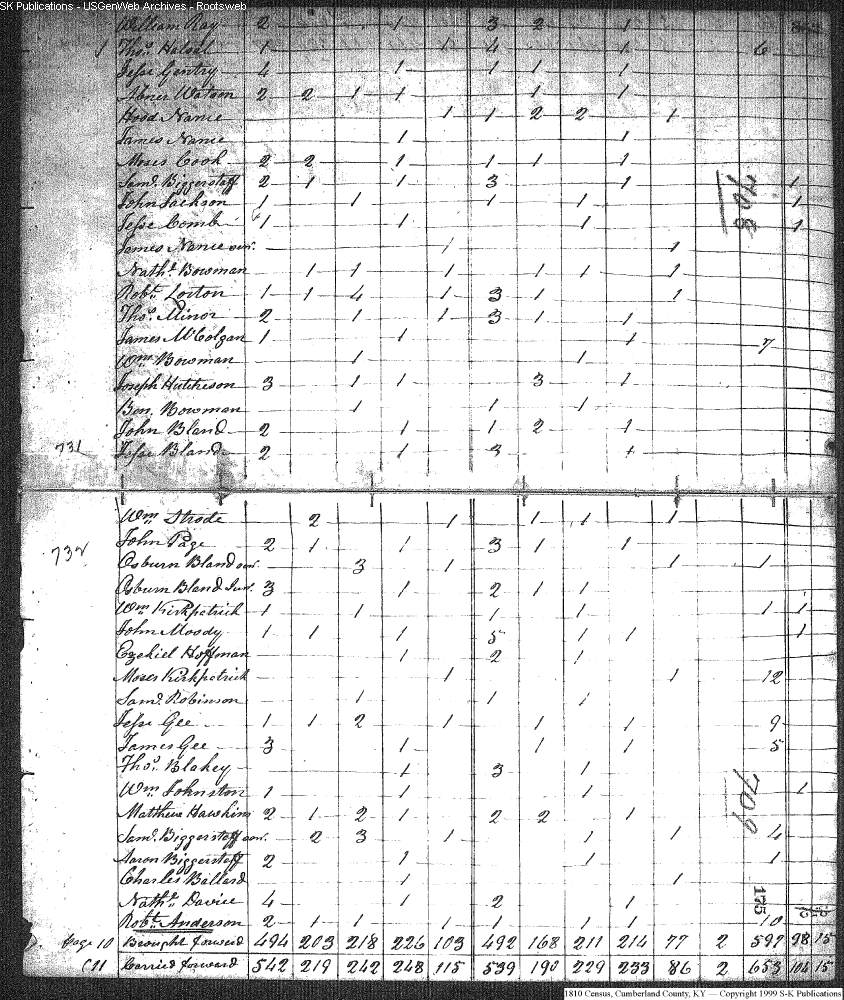 SK Publications - USGenWeb Archives - Rootsweb
William Ray 2 1 3 2 1
Thos. Halsel 1 1 4 1 6
Jesse Gentry 4 1 1 1 1
Abner Watson 2 2 1 1 1 1
Hood Nance 1 1 2 2 1
James Nance 1 1
Moses Cook 2 2 1 1 1 1
Saml. Biggerstaff 2 1 1 3 1 1
John Jackson 1 1 1 1 1
Jesse Comb 1 1 1 1
708
James Nance senr. 1 1
Nathl. Bowman 1 1 1 1 1 1
Robt. Lorton 1 1 4 1 3 1 1
Thos. Minor 2 1 1 3 1 1
James McColgan 1 1 1 7
Wm. Bowman 1 1
Joseph Hutcheson 3 1 1 3 1
Ben. Bowman 1 1 1
John Bland 2 1 1 2 1
731 Jesse Bland 2 1 3 1
Wm. Strode 2 1 1 1 1
732 John Page 2 1 1 3 1 1
Osburn Bland senr. 3 1 1 1
Osburn Bland Junr. 3 1 2 1 1
Wm. Kirkpatrick 1 1 1 1 1 1
John Moody 1 1 1 5 1 1 1
Ezekiel Hoffman 1 2 1
Moses Kirkpatrick 1 1 12
Saml. Robinson 1 1 1
Jesse Gee 1 1 2 1 1 1 9
James Gee 3 1 1 1 5
Thos. Blakey 1 3 1
Wm. Johnston 1 1 1 1
Matthew Hawkins 2 1 2 1 2 2 1
709
Saml. Biggerstaff senr. 2 3 1 1 1 4
Aaron Biggerstaff 2 1 1 1
Charles Ballard 1 1
Nathl. Davice 4 1 2 1
135
Robt. Anderson 2 1 1 1 1 1 1 10
Page 10 Brought forward 494 203 218 226 103 492 168 211 214 77 2 597 98 15
11 Carried forward 542 219 242 248 115 539 190 229 233 86 2 653 104 15
1810 Census, Cumberland County, KY — Copyright 1999 S-K Publications